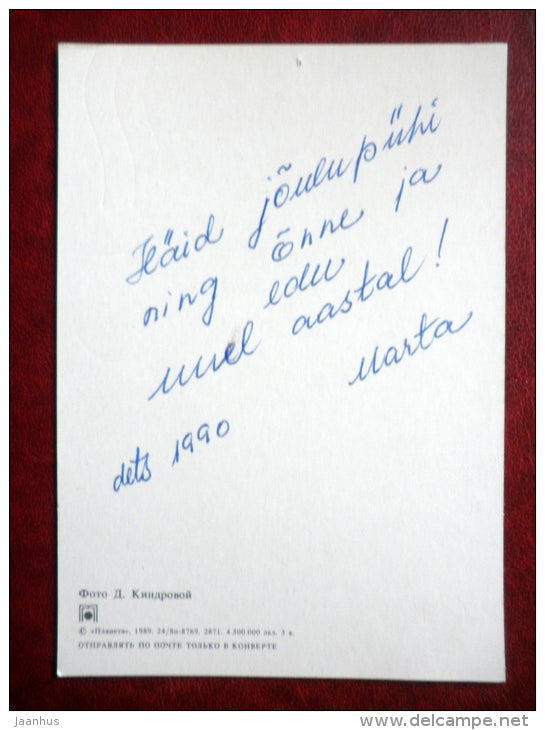 Häid jõulupühi
ning õnne ja
edu
uuel aastal!
Marta
dets 1990
Фото Д. Киндровой
© «Планета», 1989. 24/8п-8769. 2871. 4 500 000 экз. 3 к.
ОТПРАВЛЯТЬ ПО ПОЧТЕ ТОЛЬКО В КОНВЕРТЕ
jaanhus
www.delcampe.net